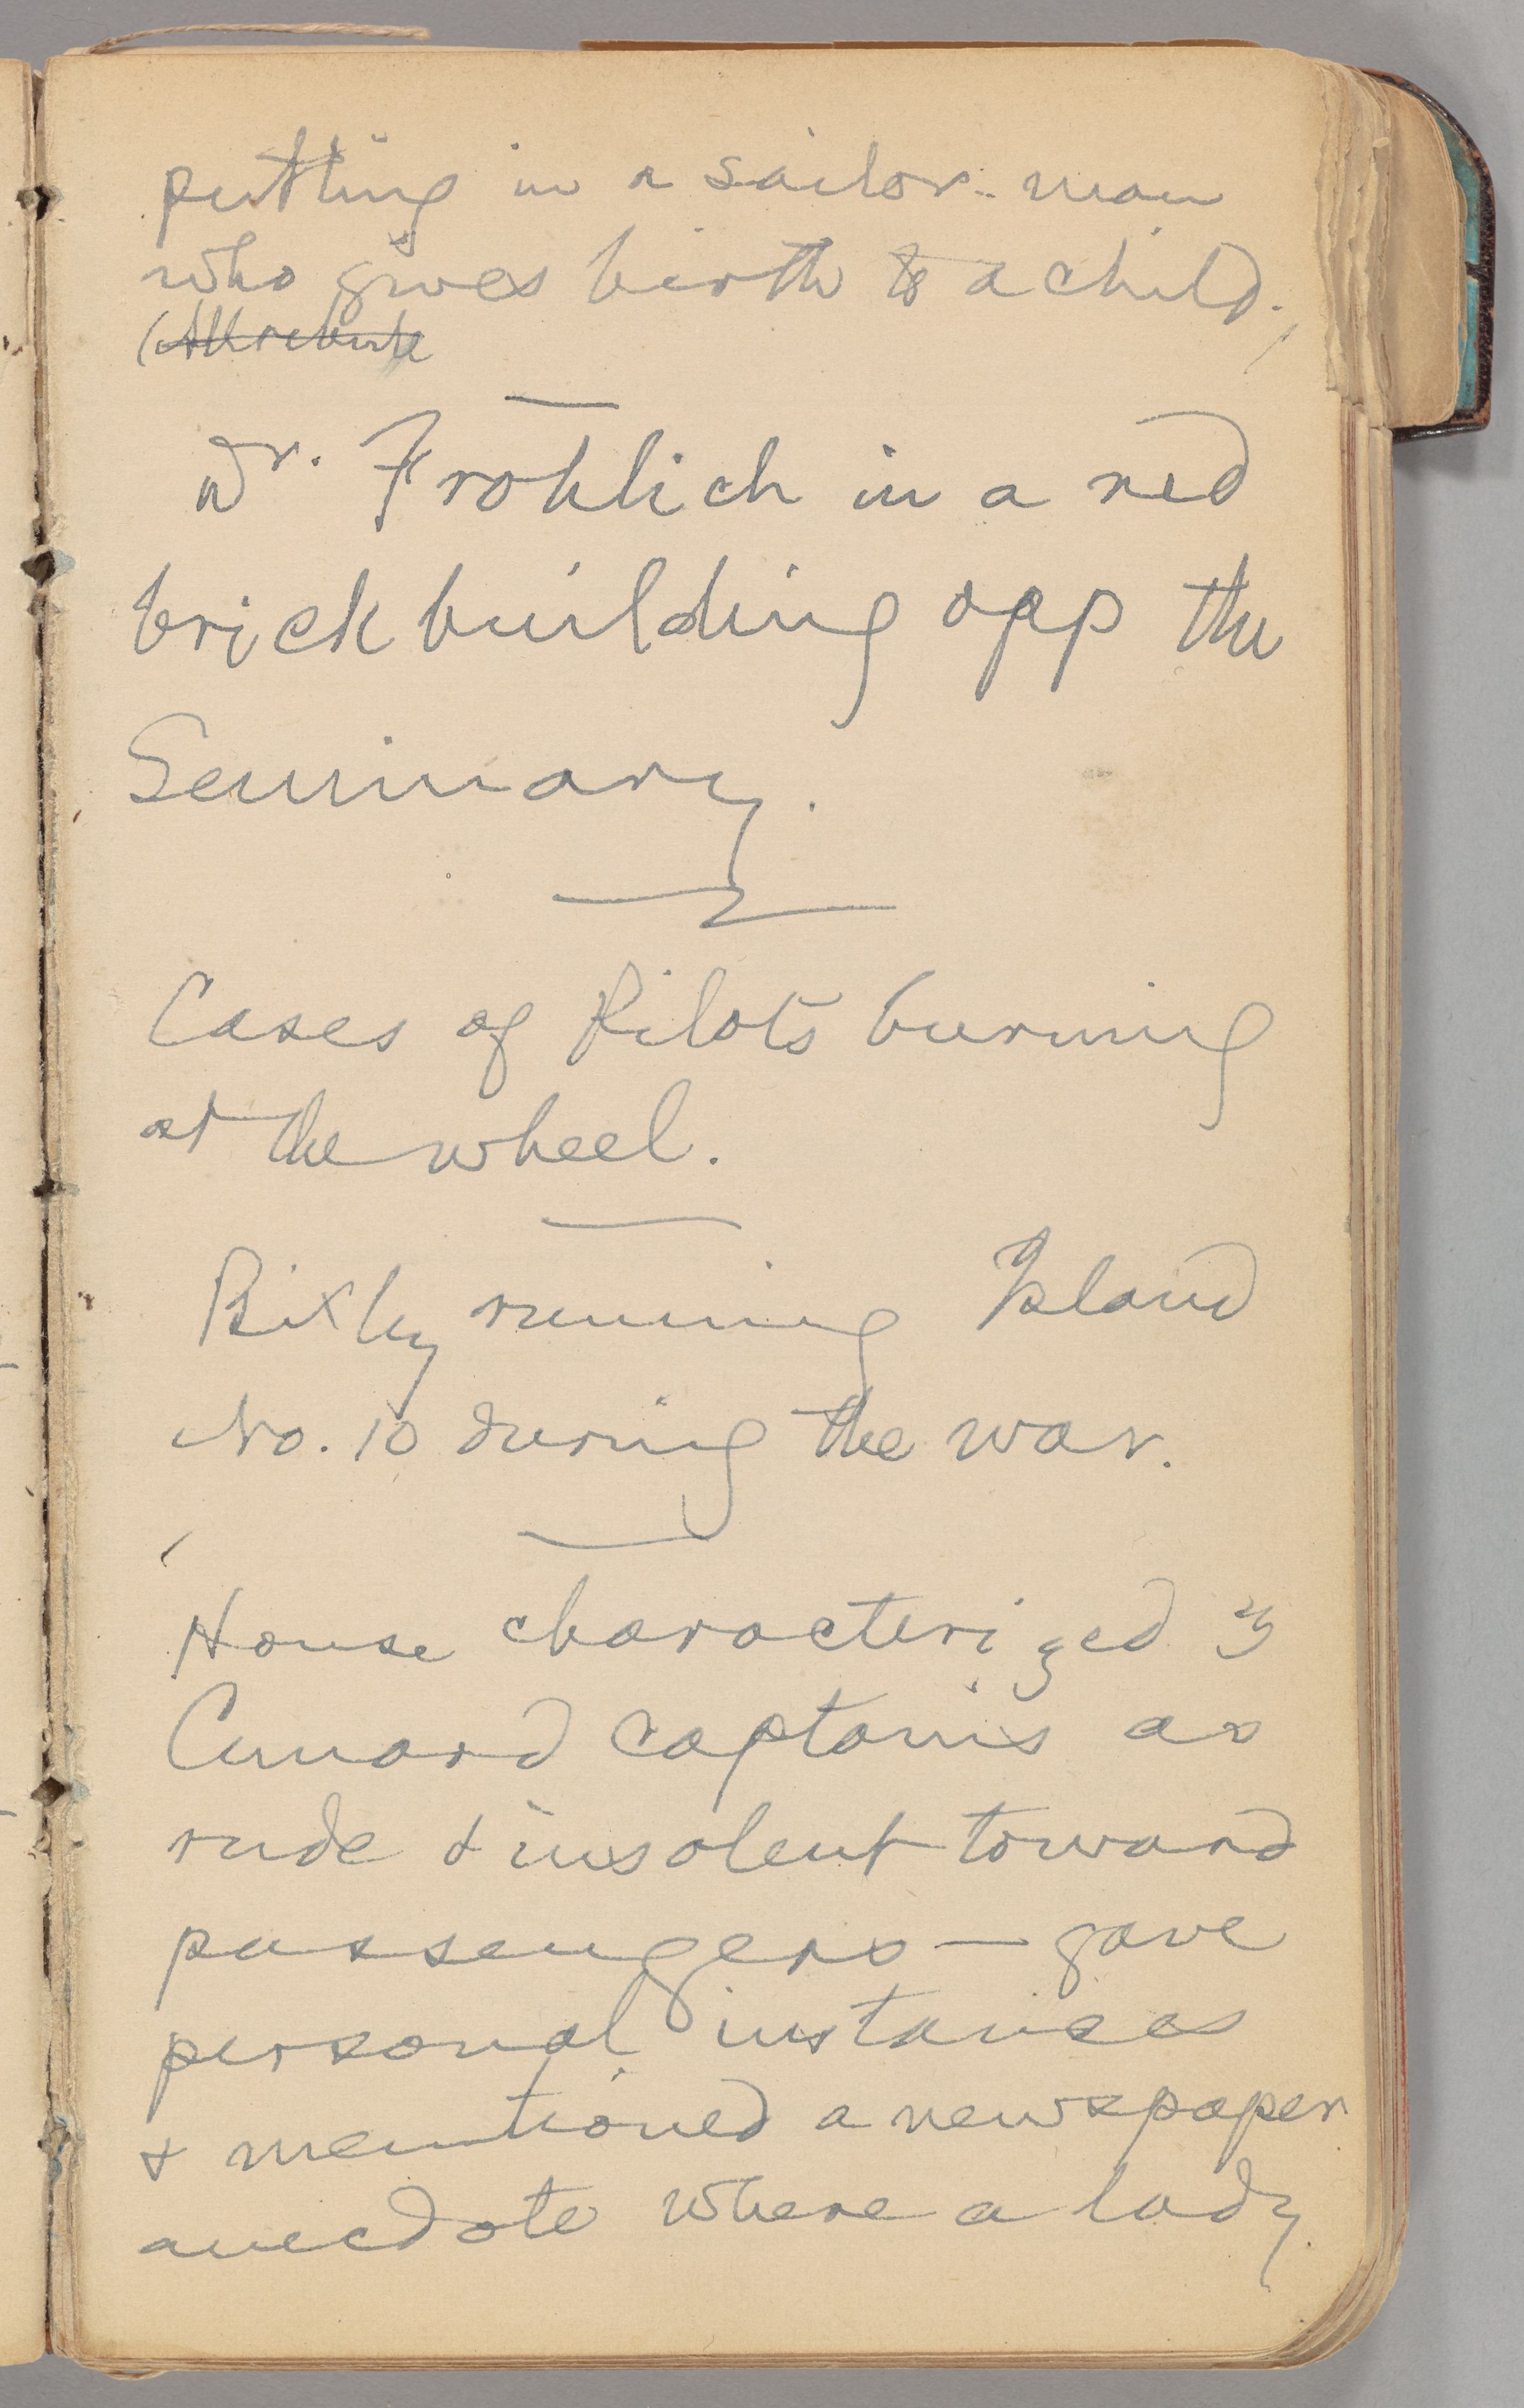 putting in a sailor-man
who gives birth to a child.
(Attribute
Dr. Frohlich in a red
brick building opp the
Seminary.
Cases of Pilots burning
at the wheel.
Bixby running Island
No. 10 during the war.
House characterized
Cunard captains as
rude & insolent toward
passengers — gave
personal instances
& mentioned a newspaper
anecdote where a lady